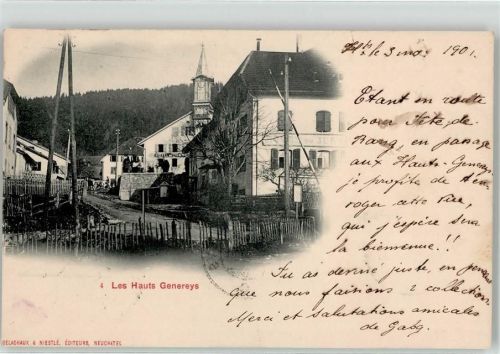 le 3 nov. 1901.
Étant en route
pour Tête de
Rang, en passage
aux Hauts-Geneveys
je profite de t'en
voyer cette vue,
qui j'espère sera
la bienvenue!!
Tu as deviné juste, en pensant
que nous faisions 2 collections
Merci et salutations amicales
de Gaby.
4 Les Hauts Genereys
DELACHAUX & NIESTLÉ, ÉDITEURS, NEUCHATEL